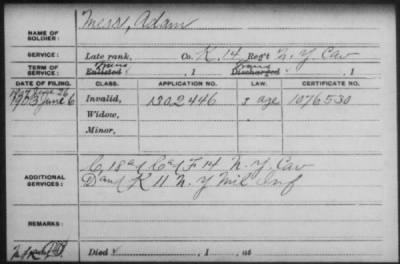 NAME OF SOLDIER: Messi, Adam
SERVICE: Late rank, Co. K, 14 Reg't N. Y. Cav
TERM OF SERVICE: Enlisted , 1 Discharged , 1
DATE OF FILING. CLASS. APPLICATION NO. LAW. CERTIFICATE NO.
1903 June 6 Invalid, 1302446 age 1076530
Widow,
Minor,
ADDITIONAL SERVICES: C 18 and F 14 N. Y. Cav
D and K 11 N. Y Mil Inf
REMARKS:
Died , 1 , at